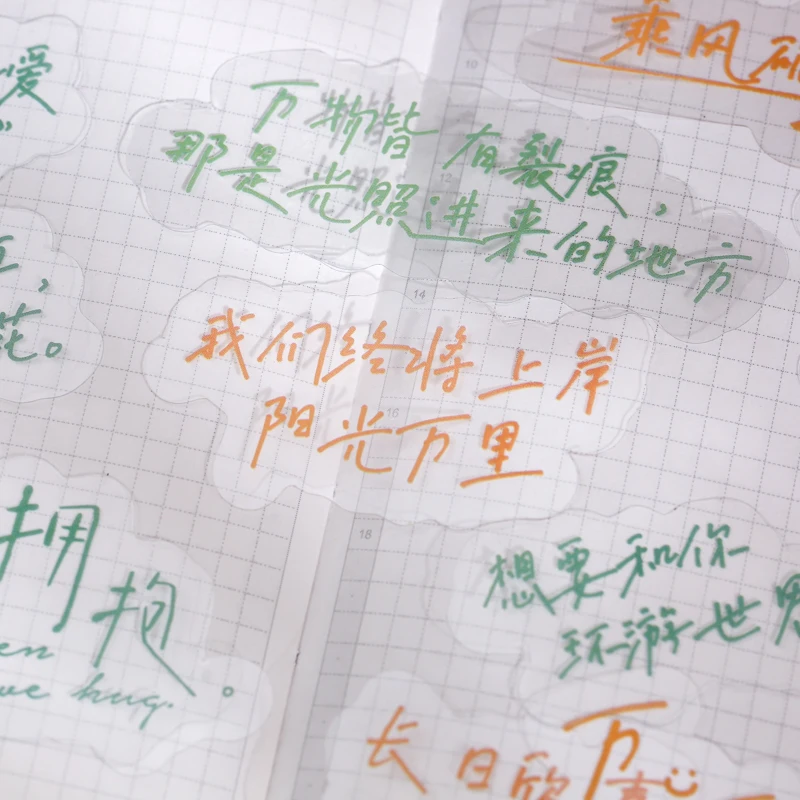 乘风破
爱
万物皆有裂痕，
那是光照进来的地方
，
花。
我们终将上岸
阳光万里
拥
抱。
en
we hug.
想要和你
环游世界
长日欣
万
喜
10
12
14
16
18